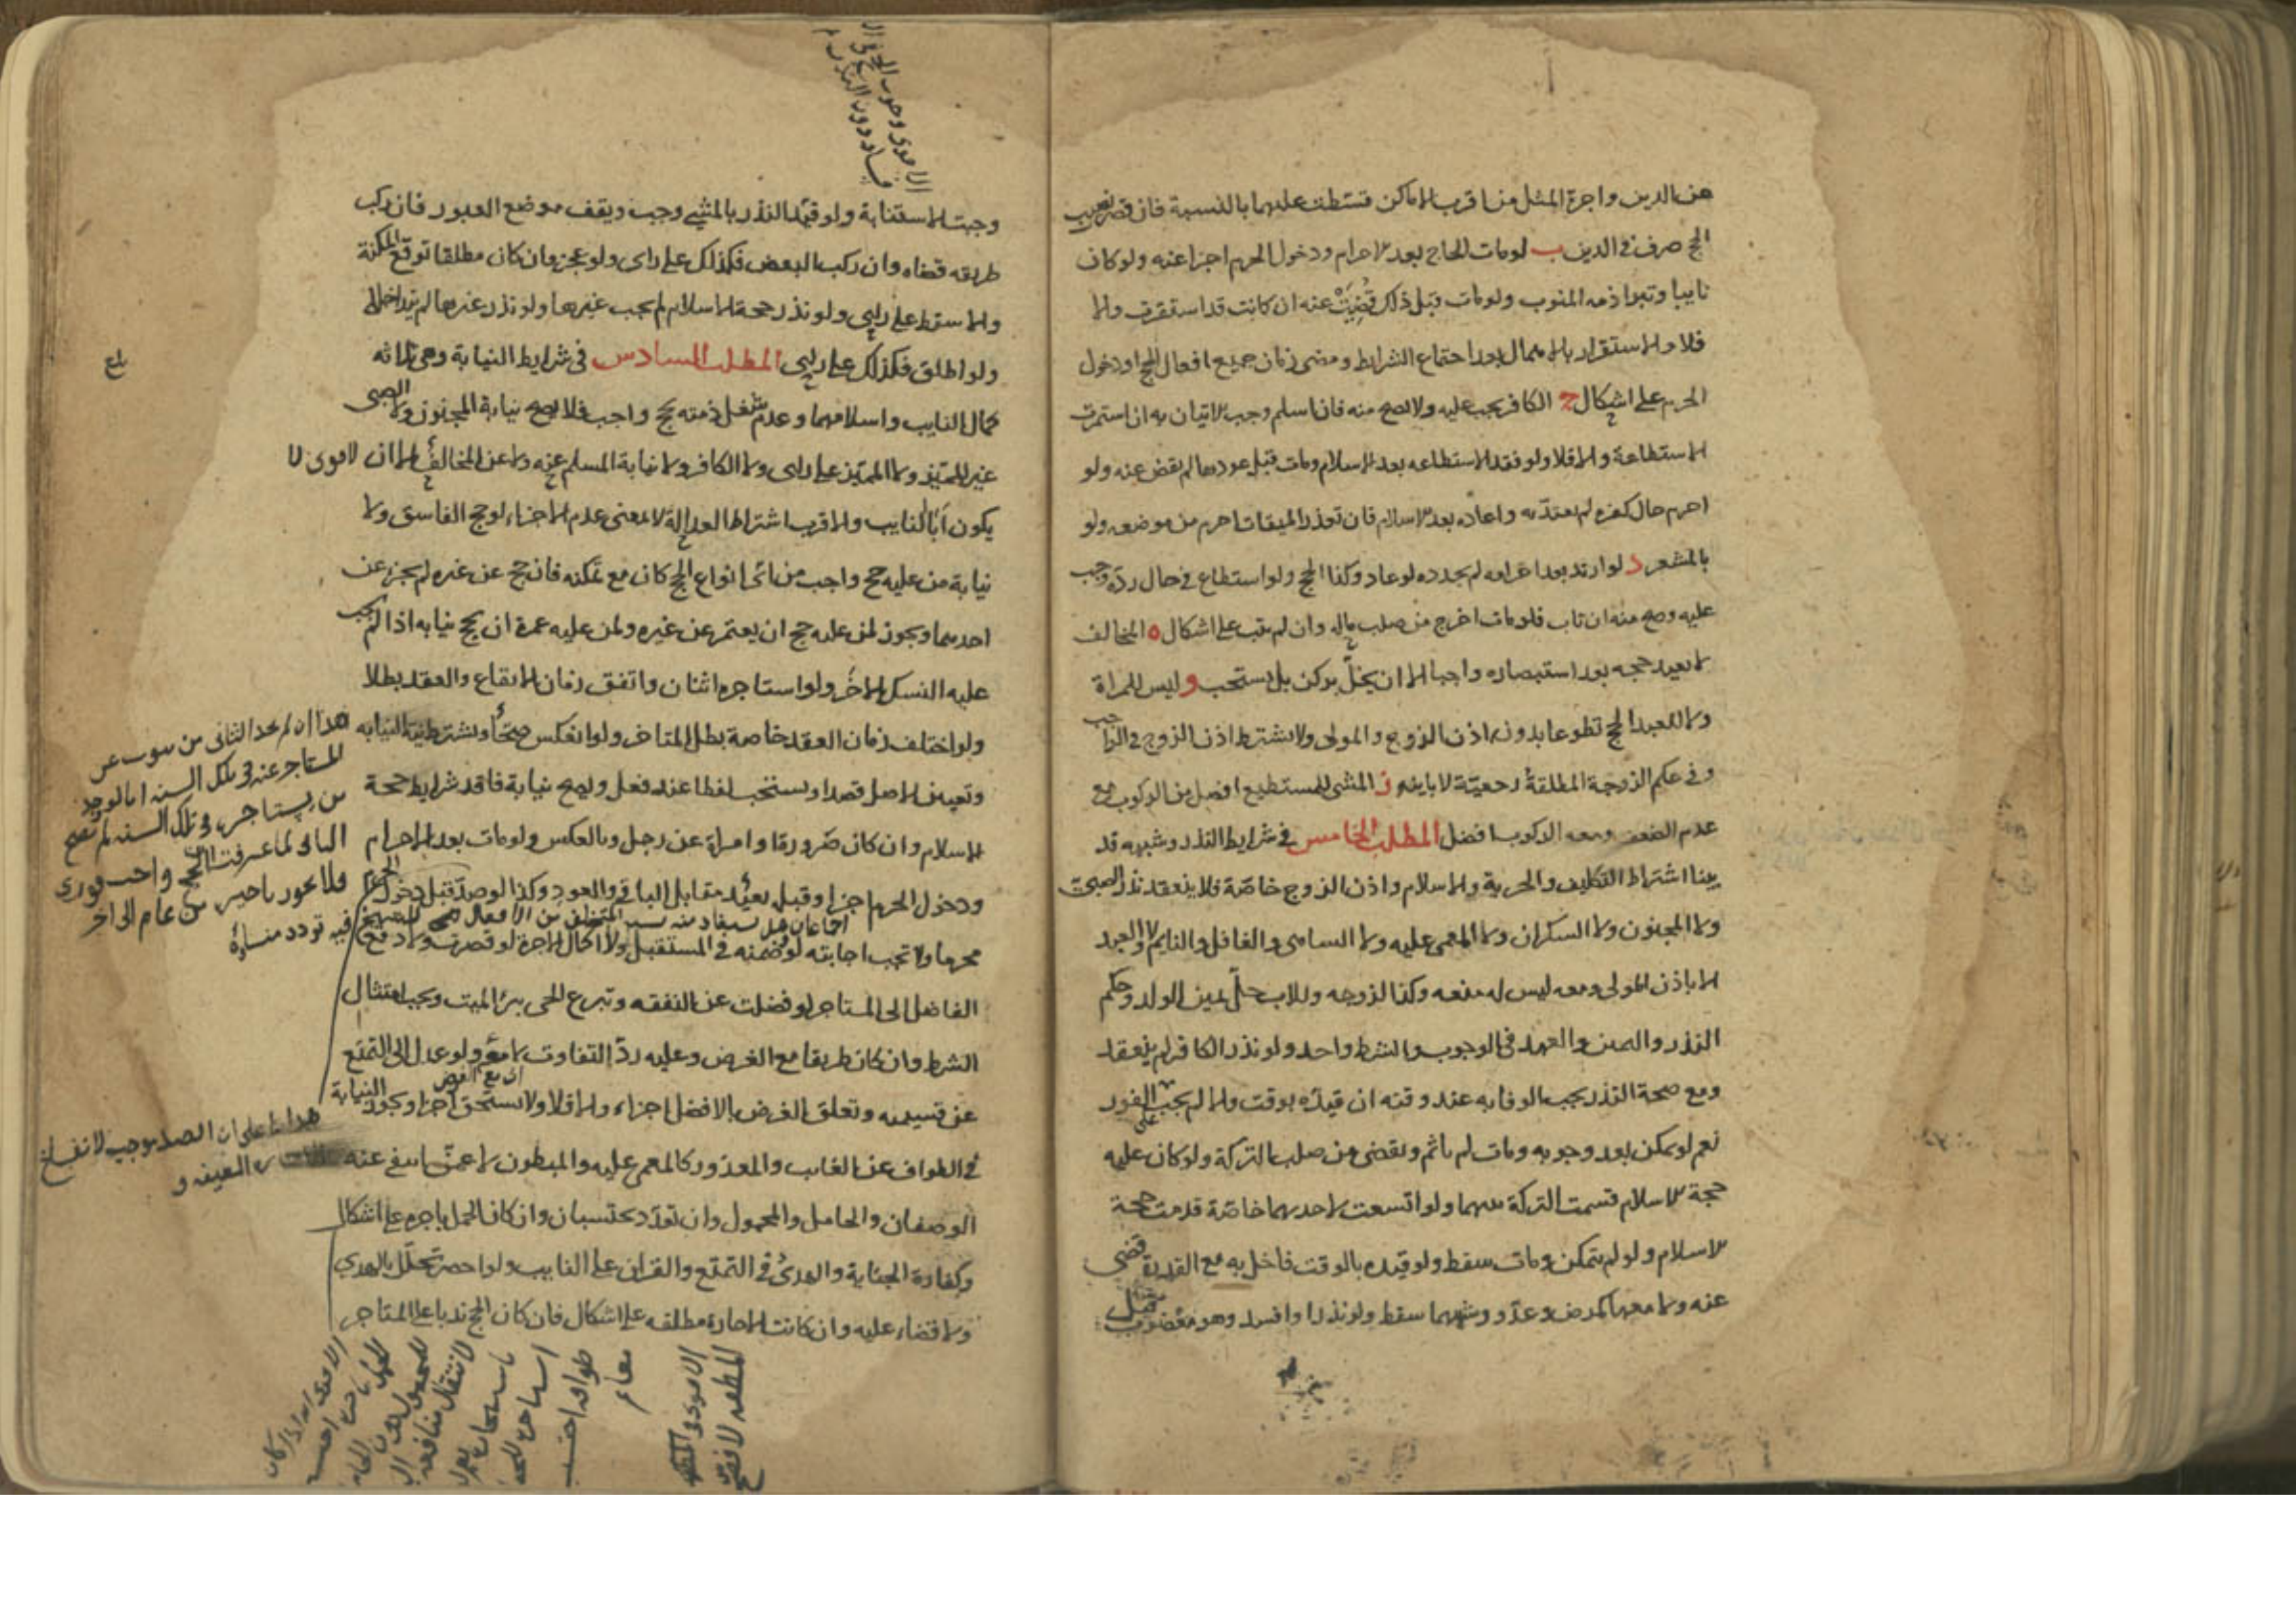 من الدين واجرة المثل من اقرب الاماكن قسّطت عليهما بالنسبة فان قصر نصيب
الحج صرف في الدين ب لو مات الحاج بعد الاحرام ودخول الحرم اجزا عنه ولو كان
نايبا وتبرا ذمه المنوب ولو مات قبل ذلك قُضِيَتْ عنه ان كانت قد استقرت والا
فلا والاستقرار بالاهمال بعد اجتماع الشرايط ومضى زمان جميع افعال الحج او دخول
الحرم على اشكال ج الكافر يجب عليه ولا تصح منه فان اسلم وجب الاتيان به ان استمرت
الاستطاعة والا فلا ولو فقد الاستطاعه بعد الاسلام ومات قبل عودها لم يقض عنه ولو
احرم حال كفره لم يعتدّ به واعاده بعد الاسلام فان تعذر الميقات احرم من موضعه ولو
بالمشعر د لو ارتد بعد احرامه لم يجدده لو عاد وكذا الحج ولو استطاع في حال ردّه وجب
عليه وصح منه ان تاب فلو مات اخرج من صلب ماله وان لم يتب على اشكال ه المخالف
لا يعيد حجه بعد استبصاره واجبا الا ان يخلّ بركن بل يستحب و ليس للمراة
ولا للعبد الحج تطوعا بدون اذن الزوج والمولى ولا يشترط اذن الزوج في الواجب
وفي حكم الزوجة المطلقةُ رجعيّة لا باينه ز المشي للمستطيع افضل من الركوب مع
عدم الضعف ومعه الركوب افضل المطلب الخامس في شرايط النذر وشبهه قد
بينا اشتراط التكليف والحرية والاسلام واذن الزوج خاصّة فلا ينعقد نذر الصبي
ولا المجنون ولا السكران ولا المغمى عليه ولا الساهي والغافل والنايم ولا العبد
الا باذن المولى ومعه ليس له منعه وكذا الزوجه وللاب حلّ يمين الولد وحكم
النذر واليمين والعهد في الوجوب والشرط واحد ولو نذر الكافر لم ينعقد
ومع صحة النذر يجب الوفا به عند وقته ان قيدّه بوقت والا لم يجب على الفور
نعم لو تمكن بعد وجوبه ومات لم ياثم ويقضى من صلب التركة ولو كان عليه
حجة الاسلام قسمت التركة بينهما ولو اتسعت لاحدهما خاصّة قدمت حجة
الاسلام ولو لم يتمكن ومات سقط ولو قيده بالوقت فاخل به مع القدرة قضي
عنه ولا معها كمرض وعدّو وشبههما سقط ولو نذر او افسد وهو معضوب قيل
وجبت الاستنابة ولو قيّد النذر بالمشي وجب ويقف موضع العبور فان ركب
طريقه قضاه وان ركب البعض فكذلك على راى ولو عجز فان كان مطلقا توقّع المكنة
والا سقط على راى ولو نذر حجة الاسلام لم يجب غيرها ولو نذر غيرها لم يتداخلا
ولو اطلق فكذلك على راى المطلب السادس في شرايط النيابة وهي ثلاثه
كمال النايب واسلامهما وعدم شغل ذمته بحج واجب فلا يصح نيابة المجنون ولا الصبى
غير المميّز ولا المميّز على راى ولا الكافر ولا نيابة المسلم عنه ولا عن المخالف الا ان الاقوى لا
يكون اَبًا للنايب والاقرب اشتراط العدالة لا بمعنى عدم الاجزاء لو حج الفاسق ولا
نيابة من عليه حج واجب من اىّ انواع الحج كان مع تمكنه فان حج عن غيره لم يجز عن
احدهما ويجوز لمن عليه حج ان يعتمر عن غيره ولمن عليه عمرة ان يحج نيابه اذا لم يجب
عليه النسك الاخر ولو استاجره اثنان واتفق زمان الايقاع والعقد بطلا
ولو اختلف زمان العقد خاصة بطل المتاخر ولو انعكس صحّا ويشترط نية النيابه
وتعيين الاصل قصدا ويستحب لفظا عند فعل ويصح نيابة فاقد شرايط حجة
الاسلام وان كان صَرورة او امراة عن رجل وبالعكس ولو مات بعد الاحرام
ودخول الحرم اجزا وقبله يعيد مقابل الباقي والعود وكذا لو صدّ قبل دخول الحرم
محرما ولا تجب اجابته لو ضمنه في المستقبل ولا اكمال الاجرة لو قصرت ولا دفع
الفاضل الى المستاجر لو فضلت عن النفقه وتبرع الحى يبرئ الميت ويجب امتثال
الشرط وان كان طريقا مع الغرض وعليه ردّ التفاوت لا معه ولو عدل الى التمتع
عن قسيميه وتعلق الغرض بالافضل اجزاء والا فلا ولا يستحق اجرا ويجوز النيابة
في الطواف عن الغايب والمعذور كالمغمى عليه والمبطون لا عمّن انتفى عنه
الوصفان والحامل والمحمول وان تعدّد يحتسبان وان كان الحمل باجره على اشكال
وكفارة الجناية والهدىُ في التمتع والقران على النايب ولو احصر تحلّل بالهدي
ولا قضاء عليه وان كانت الاجارة مطلقه على اشكال فان كان الحج ندبا على المستاجر
بلغ
هذا ان لم يجد الثاني من ينوب عن
المستاجر عنه في تلك السنه اما لو وجد
من يستاجره في تلك السنه لم تصح
الثاني لما عرفت ان الحج واجب فورى
فلا يجوز تاخيره من عام الى اخر
فيه تردد منشاؤه
هذا بنا على ان الصد يوجب الانفساخ